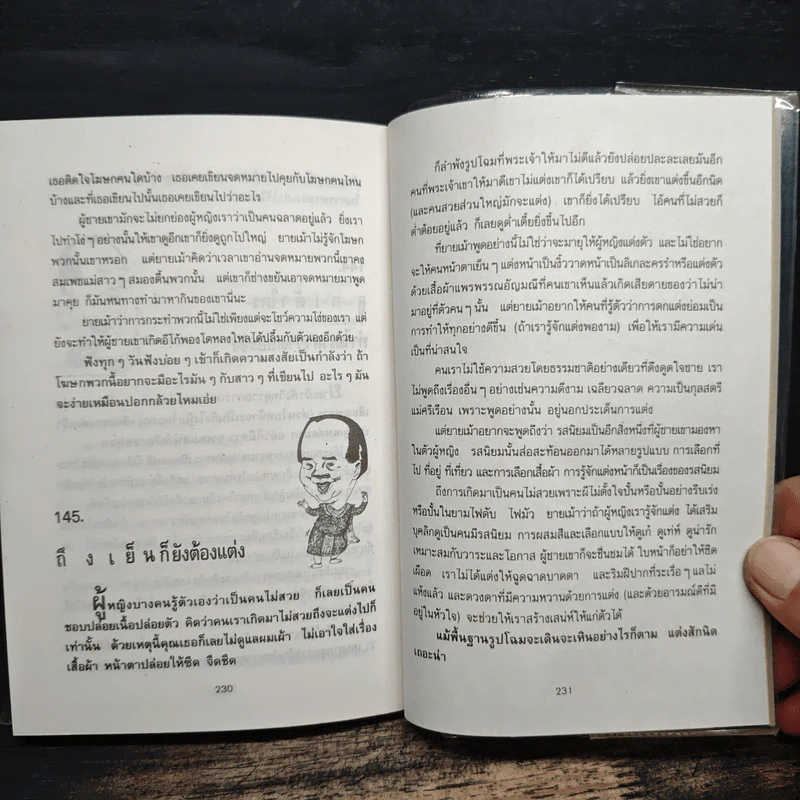 เธอคิดใจโฆษกคนใดบ้าง เธอเคยเขียนจดหมายไปคุยกับโฆษกคนไหน
บ้างและที่เธอเขียนไปนั้นเธอเคยเขียนไปว่าอะไร
ผู้ชายเขามักจะไม่ยกย่องผู้หญิงเราว่าเป็นคนฉลาดอยู่แล้ว ยิ่งเรา
ไปทำโง่ๆอย่างนั้นให้เขาดูอีกเขาก็ยิ่งดูถูกไปใหญ่ ยายเม้าไม่รู้จักโฆษก
พวกนั้นเขาหรอก แต่ยายเม้าคิดว่าเวลาเขาอ่านจดหมายพวกนี้เขาคง
สมเพชแม่สาวๆสมองตื้นพวกนั้น แต่เขาก็ช่างขยันเอาจดหมายมาพูด
มาคุย ก็มันหนทางทำมาหากินของเขานี่นะ
ยายเม้าว่าการกระทำพวกนี้ไม่ใช่เพียงแต่จะโชว์ความโง่ของเรา แต่
ยังจะทำให้ผู้ชายเขาเกิดอีโก้พองโตหลงใหลได้ปลื้มกับตัวเองอีกด้วย
ฟังทุกๆวันฟังบ่อยๆเข้าก็เกิดความสงสัยเป็นกำลังว่า ถ้า
โฆษกพวกนี้อยากจะมีอะไรมันๆกับสาวๆที่เขียนไป อะไรๆมัน
จะง่ายเหมือนปอกกล้วยไหมเอ่ย
145.
ถึงเย็นก็ยังต้องแต่ง
ผู้หญิงบางคนรู้ตัวเองว่าเป็นคนไม่สวย ก็เลยเป็นคน
ชอบปล่อยเนื้อปล่อยตัว คิดว่าคนเราเกิดมาไม่สวยถึงจะแต่งไปก็
เท่านั้น ด้วยเหตุนี้คุณเธอก็เลยไม่ดูแลผมเผ้า ไม่เอาใจใส่เรื่อง
เสื้อผ้า หน้าตาปล่อยให้ซีด จืดชืด
230
ก็ลำพังรูปโฉมที่พระเจ้าให้มาไม่ดีแล้วยังปล่อยปละละเลยมันอีก
คนที่พระเจ้าเขาให้มาดีเขาไม่แต่งเขาก็ได้เปรียบ แล้วยิ่งเขาแต่งขึ้นอีกนิด
(และคนสวยส่วนใหญ่มักจะแต่ง). เขาก็ยิ่งได้เปรียบ ไอ้คนที่ไม่สวยก็
ต่ำต้อยอยู่แล้ว ก็เลยดูต่ำเตี้ยยิ่งขึ้นไปอีก
ที่ยายเม้าพูดอย่างนี้ไม่ใช่ว่าจะมายุให้ผู้หญิงแต่งตัว และไม่ใช่อยาก
จะให้คนหน้าตาเย็นๆแต่งหน้าเป็นงิ้ววาดหน้าเป็นลิเกละครรำหรือแต่งตัว
ด้วยเสื้อผ้าแพรพรรณอัญมณีที่คนเขาเห็นแล้วเกิดเสียดายของว่าไม่น่า
มาอยู่ที่ตัวคนๆนั้น แต่ยายเม้าอยากให้คนที่รู้ตัวว่าการตกแต่งย่อมเป็น
การทำให้ทุกอย่างดีขึ้น (ถ้าเรารู้จักแต่งพองาม) เพื่อให้เรามีความเด่น
เป็นที่น่าสนใจ
คนเราไม่ใช้ความสวยโดยธรรมชาติอย่างเดียวที่ดึงดูดใจชาย เรา
ไม่พูดถึงเรื่องอื่นๆอย่างเช่นความดีงาม เฉลียวฉลาด ความเป็นกุลสตรี
แม่ศรีเรือน เพราะพูดอย่างนั้น อยู่นอกประเด็นการแต่ง
แต่ยายเม้าอยากจะพูดถึงว่า รสนิยมเป็นอีกสิ่งหนึ่งที่ผู้ชายเขามองหา
ในตัวผู้หญิง รสนิยมนั้นส่อสะท้อนออกมาได้หลายรูปแบบ การเลือกที่
ไป ที่อยู่ ที่เที่ยว และการเลือกเสื้อผ้า การรู้จักแต่งหน้าก็เป็นเรื่องของรสนิยม
ถึงการเกิดมาเป็นคนไม่สวยเพราะผีไม่ตั้งใจปั้นหรือปั้นอย่างรีบเร่ง
หรือปั้นในยามไฟดับ ไฟมัว ยายเม้าว่าถ้าผู้หญิงเรารู้จักแต่ง ได้เสริม
บุคลิกดูเป็นคนมีรสนิยม การผสมสีและเลือกแบบให้ดูเก๋ ดูเท่ห์ ดูน่ารัก
เหมาะสมกับวาระและโอกาส ผู้ชายเขาก็จะชื่นชมได้ ใบหน้าก็อย่าให้ซีด
เผือด เราไม่ได้แต่งให้ฉูดฉาดบาดตา และริมฝีปากที่ระเรื่อๆแลไม่
แห้งแล้ง และดวงตาที่มีความหวานด้วยการแต่ง (และด้วยอารมณ์ดีที่มี
อยู่ในหัวใจ) จะช่วยให้เราสร้างเสน่ห์ให้แก่ตัวได้
แม้พื้นฐานรูปโฉมจะเดินจะเหินอย่างไรก็ตาม แต่งสักนิด
เถอะน่า
231